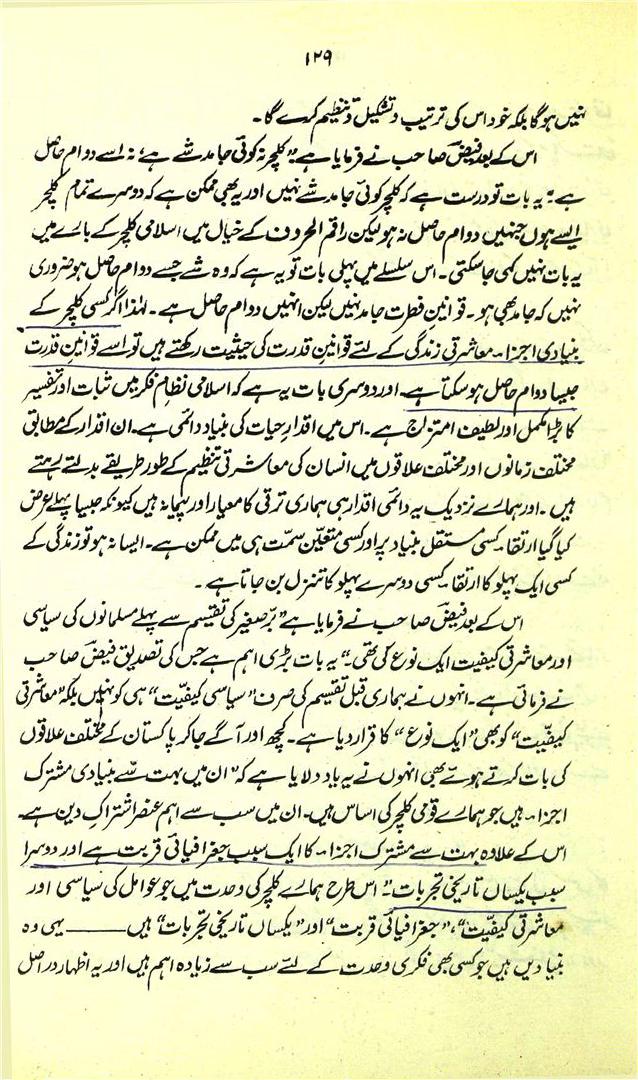 ۱۲۹
نہیں ہوگا بلکہ خود اس کی ترتیب و تشکیل و تنظیم کرے گا۔
اس کے بعد فیضؔ صاحب نے فرمایا ہے "کلچر نہ کوئی جامد شے ہے، نہ اسے دوام حاصل
ہے" یہ بات تو درست ہے کہ کلچر کوئی جامد شے نہیں اور یہ بھی ممکن ہے کہ دوسرے تمام کلچر
ایسے ہوں جنہیں دوام حاصل نہ ہو لیکن راقم الحروف کے خیال میں اسلامی کلچر کے بارے میں
یہ بات نہیں کہی جا سکتی۔ اس سلسلے میں پہلی بات تو یہ ہے کہ وہ شے جسے دوام حاصل ہو ضروری
نہیں کہ جامد بھی ہو۔ قوانینِ فطرت جامد نہیں لیکن انہیں دوام حاصل ہے۔ لہٰذا اگر کسی کلچر کے
بنیادی اجزاء معاشرتی زندگی کے لئے قوانینِ قدرت کی حیثیت رکھتے ہیں تو اسے قوانینِ قدرت
جیسا دوام حاصل ہو سکتا ہے۔ اور دوسری بات یہ ہے کہ اسلامی نظامِ فکر میں ثبات اور تغیر
کا بڑا مکمل اور لطیف امتزاج ہے۔ اس میں اقدارِ حیات کی بنیاد دائمی ہے۔ ان اقدار کے مطابق
مختلف زمانوں اور مختلف علاقوں میں انسان کی معاشرتی تنظیم کے طور طریقے بدلتے رہتے
ہیں۔ اور ہمارے نزدیک یہ دائمی اقدار ہی ہماری ترقی کا معیار اور پیمانہ ہیں کیونکہ جیسا پہلے عرض
کیا گیا ارتقاء کسی مستقل بنیاد پر اور کسی متعیّن سمت ہی میں ممکن ہے۔ ایسا نہ ہو تو زندگی کے
کسی ایک پہلو کا ارتقاء کسی دوسرے پہلو کا تنزل بن جاتا ہے۔
اس کے بعد فیضؔ صاحب نے فرمایا ہے "برّصغیر کی تقسیم سے پہلے مسلمانوں کی سیاسی
اور معاشرتی کیفیت ایک نوع کی تھی۔" یہ بات بڑی اہم ہے جس کی تصدیق فیضؔ صاحب
نے فرمائی ہے۔ انہوں نے ہماری قبل تقسیم کی صرف "سیاسی کیفیّت" ہی کو نہیں بلکہ "معاشرتی
کیفیّت" کو بھی "ایک نوع" کا قرار دیا ہے۔ کچھ اور آگے جا کر پاکستان کے مختلف علاقوں
کی بات کرتے ہوئے بھی انہوں نے یہ یاد دلایا ہے کہ "ان میں بہت سے بنیادی مشترک
اجزاء ہیں جو ہمارے قومی کلچر کی اساس ہیں۔ ان میں سب سے اہم عنصر اشتراکِ دین ہے۔
اس کے علاوہ بہت سے مشترک اجزاء کا ایک سبب جغرافیائی قربت ہے اور دوسرا
سبب یکساں تاریخی تجربات۔" اس طرح ہمارے کلچر کی وحدت میں جو عوامل کی سیاسی اور
معاشرتی کیفیّت"، "جغرافیائی قربت" اور "یکساں تاریخی تجربات" ہیں ——— یہی وہ
بنیادیں ہیں جو کسی بھی فکری وحدت کے لئے سب سے زیادہ اہم ہیں اور یہ اظہار دراصل